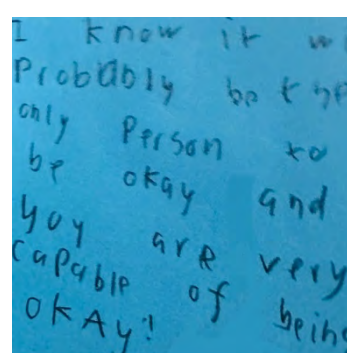 I know it wi
Probably be the
only Person to
be okay and
you are very
capable of being
OKAy!